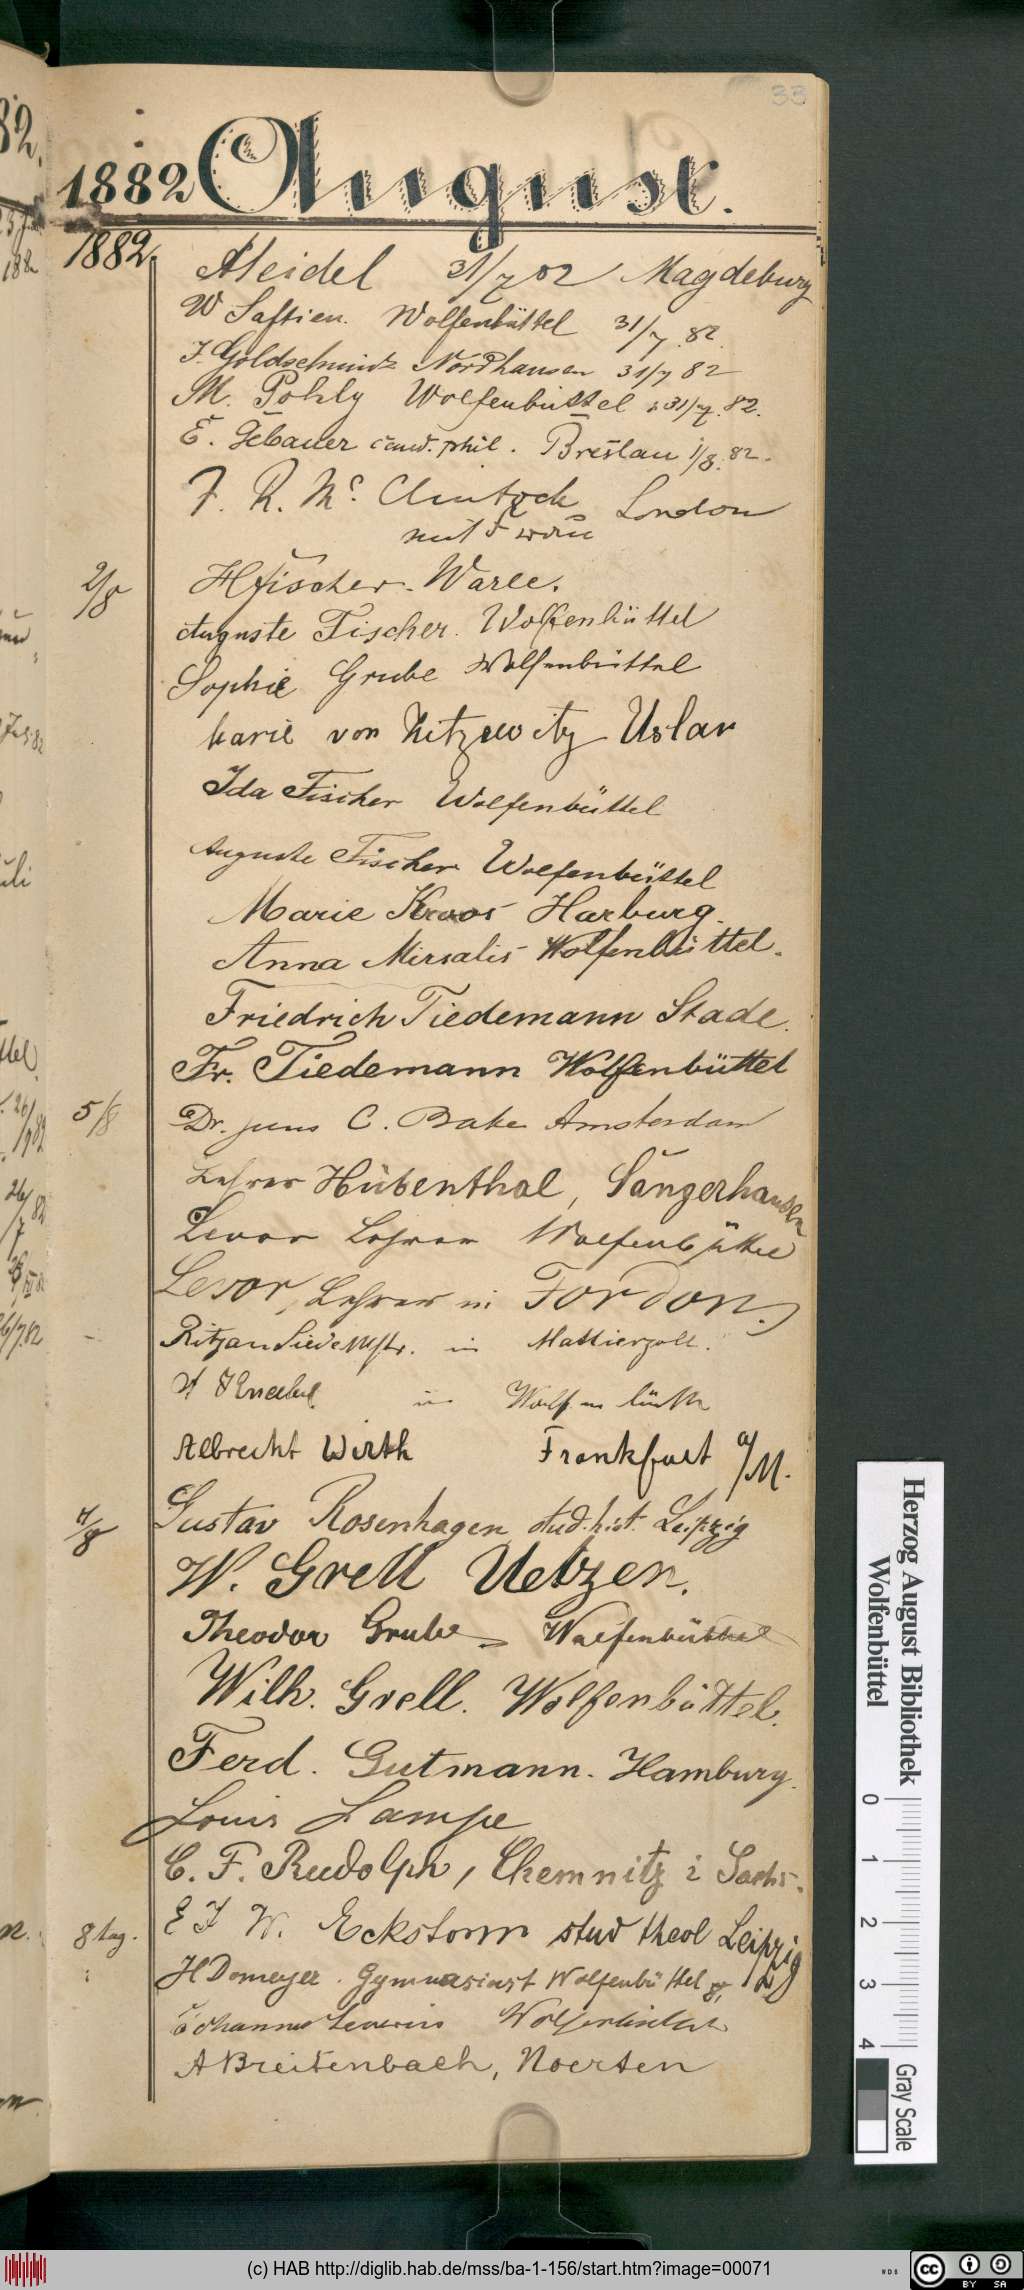 33
1882 August.
1882.
AHeidel 31/7 82 Magdeburg
W Saftien. Wolfenbüttel 31/7. 82.
J. Goldschmidt Nordhausen 31/7 82
M. Pohly Wolfenbüttel 31/7. 82.
E. Gebauer cand. phil. Breslau 1/8. 82.
F. R. Mc. Clintock London
mit Frau
2/8 HFischer. Warle.
Auguste Fischer. Wolfenbüttel
Sophie Grube Wolfenbüttel
Marie von Zitzewitz Uslar
Ida Fischer Wolfenbüttel
Auguste Fischer Wolfenbüttel
Marie Kroos Harburg.
Anna Mirsalis Wolfenbüttel.
Friedrich Tiedemann Stade.
Fr. Tiedemann Wolfenbüttel
5/8 Dr. juris C. Bake Amsterdam
Lehrer Hübenthal, Sangerhausen
Levor Lehrer Wolfenbüttel
Lesor, Lehrer in Fordon.
in Mattierzoll.
in Wolfenbüttel
Albrecht Wirth Frankfurt a/M.
7/8 Gustav Rosenhagen stud. hist. Leipzig
W. Grell Uelzen.
Theodor Grube Wolfenbüttel
Wilh. Grell. Wolfenbüttel.
Ferd. Gutmann. Hamburg.
Louis Lampe
C. F. Rudolph, Chemnitz i Sachs.
8 Aug. E F W. Eckstorm stud theol Leipzig
HDomeyer. Gymnasiast Wolfenbüttel
Johannes Severin Wolfenbüttel
A Breitenbach, Noerten
Herzog August Bibliothek
Wolfenbüttel
0 1 2 3 4
Gray Scale
(c) HAB http://diglib.hab.de/mss/ba-1-156/start.htm?image=00071
WDB
cc BY SA